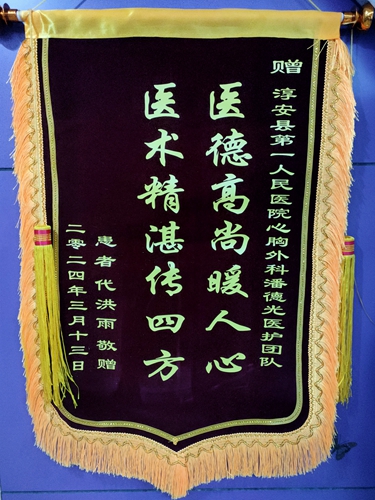 赠 淳安县第一人民医院心胸外科潘德光医护团队
医德高尚暖人心
医术精湛传四方
患者 代洪雨敬赠
二零二四年三月十三日